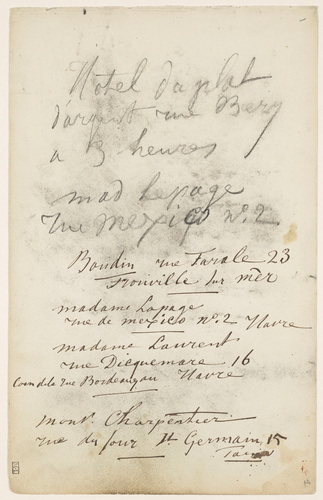 Hotel du plat
d'argent rue Bery
a 3 heures
mad Lepage
rue mexico nº. 2
Boudin rue Farale 23
Trouville sur mer
madame Lapage
rue de mexico nº. 2 Havre
madame Laurent
rue Dicquemare 16
Coin de la rue Bordeaux Havre
monsr. Charpentier
rue du four St Germain, 15